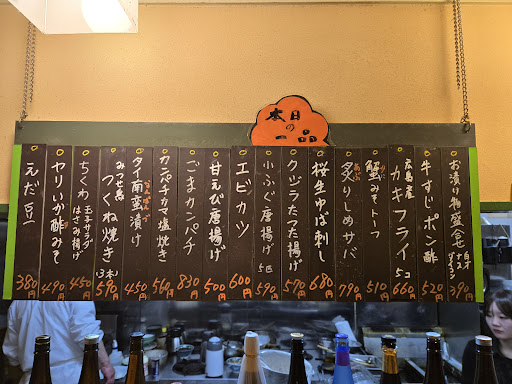 本日の一品
お漬け物盛合せ 白才 ナス ダイコン
390
牛すじポン酢
520
広島産 カキフライ 5コ
660
蟹みそトーフ
510
炙りしめサバ
790
桜生ゆば刺し
680
クジラたつた揚げ
570
小ふぐ唐揚げ 5匹
590
エビカツ
600
甘えび唐揚げ
500
ごまカンパチ
830
カンパチカマ塩焼き
560
タイ南蛮漬け
450
みつせ鶏 つくね焼き (3本)
590
ちくわ 玉子サラダ はさみ揚げ
450
ヤリいか酢みそ
490
えだ豆
380